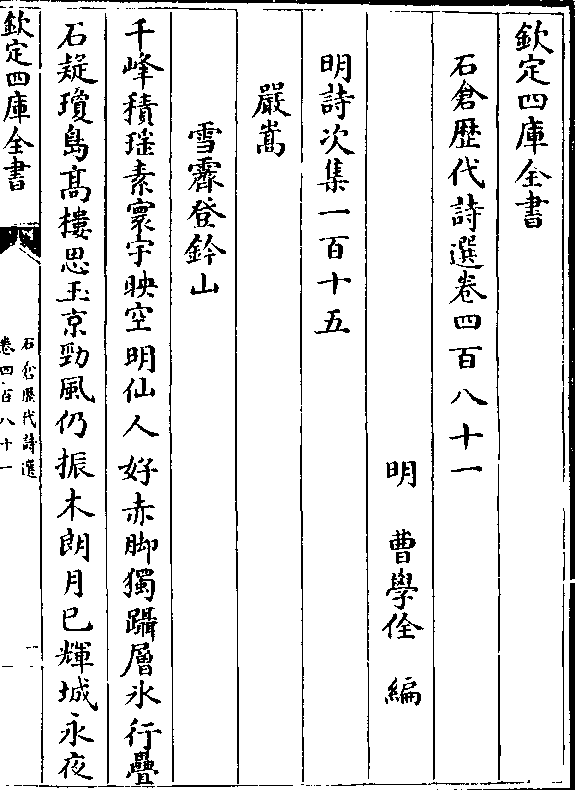 欽定四庫全書
石倉歴代詩選卷四百八十一
明 曹學佺 編
明詩次集一百十五
嚴嵩
雪霽登鈐山
千峰積瑶素寰宇映空明仙人好赤脚獨躡層氷行疊
石疑瓊島髙樓思玉京勁風仍振木朗月已輝城永夜
欽定四庫全書
石倉歴代詩選
卷四百八十一
一